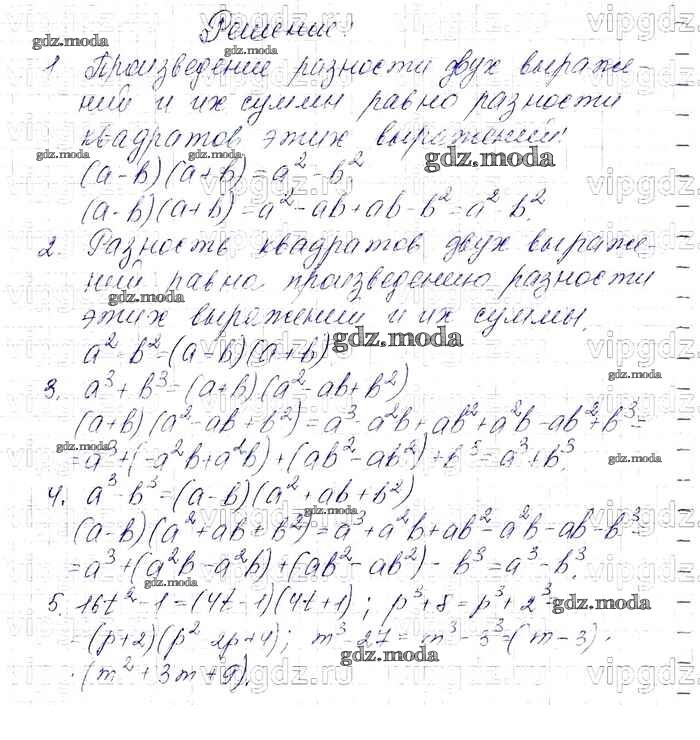 Решение:
1 Произведение разности двух выраже-
ний и их суммы равно разности
квадратов этих выражений!
(a-b)(a+b)=a²-b²
(a-b)(a+b)=a²-ab+ab-b²=a²-b².
2. Разность квадратов двух выраже-
ний равна произведению разности
этих выражений и их суммы.
a²-b²=(a-b)(a+b)
3. a³+b³=(a+b)(a²-ab+b²)
(a+b)(a²-ab+b²)=a³-a²b+ab²+a²b-ab²+b³=
=a³+(-a²b+a²b)+(ab²-ab²)+b³=a³+b³.
4. a³-b³=(a-b)(a²+ab+b²)
(a-b)(a²+ab+b²)=a³+a²b+ab²-a²b-ab-b³=
=a³+(a²b-a²b)+(ab²-ab²)-b³=a³-b³.
5. 16t²-1=(4t-1)(4t+1); p³+8=p³+2³=
=(p+2)(p² 2p+4); m³-27=m³-3³=(m-3)·
·(m²+3m+9).
gdz.moda
vipgdz.ru